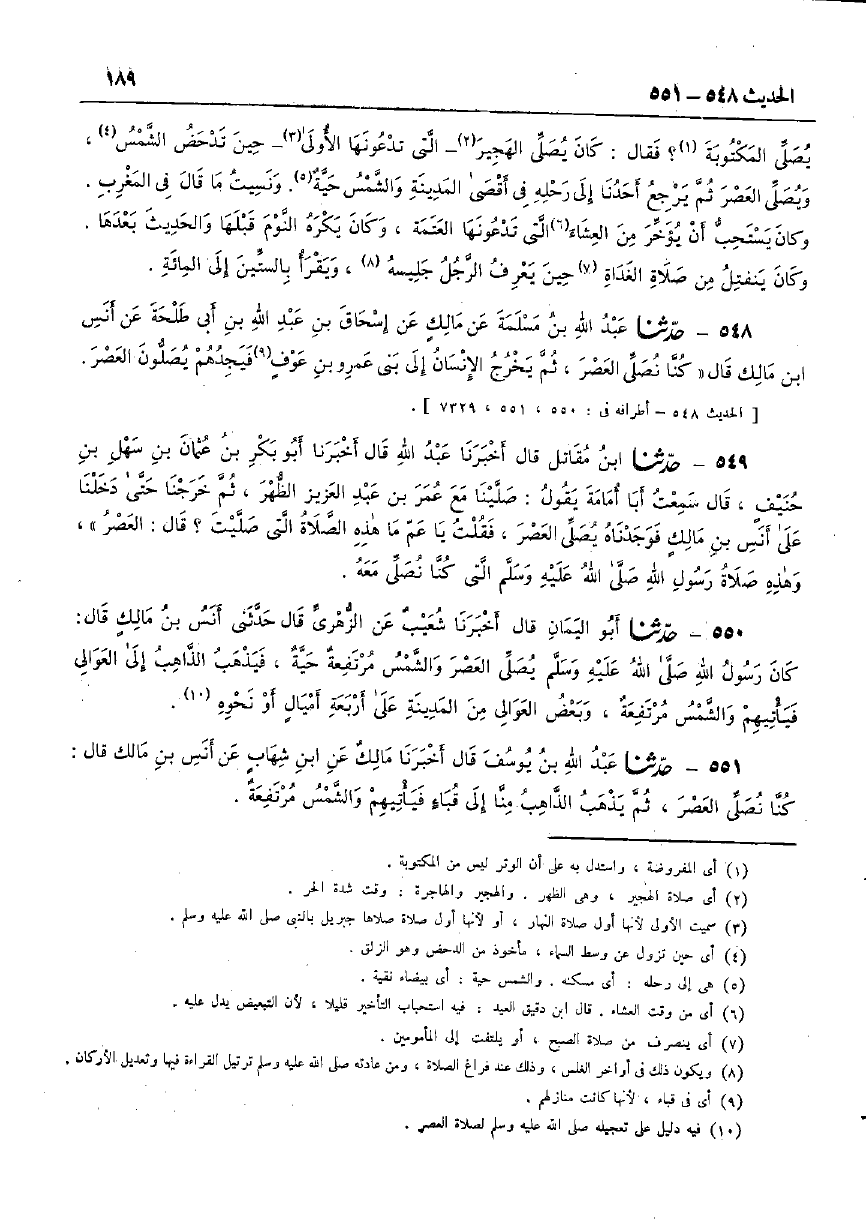 الحديث ٥٤٨ – ٥٥١
١٨٩
يُصَلِّى المَكْتُوبَةَ (١)؟ فَقال : كَانَ يُصَلِّى الهَجِيرَ(٢)– الَّتى تَدْعُونَهَا الأُولَىٰ(٣)– حِينَ تَدْحَضُ الشَّمْسُ(٤) ،
وَيُصَلِّى العَصْرَ ثُمَّ يَرْجِعُ أَحَدُنَا إِلَى رَحْلِهِ فى أَقْصَىٰ المَدِينَةِ وَالشَّمْسُ حَيَّةٌ(٥). وَنَسِيتُ مَا قَالَ فى المَغْرِبِ .
وكانَ يَسْتَحِبُّ أَنْ يُؤَخِّرَ مِنَ العِشَاءِ(٦)الَّتى تَدْعُونَهَا العَتَمَةَ ، وَكَانَ يَكْرَهُ النَّوْمَ قَبْلَهَا وَالحَدِيثَ بَعْدَهَا .
وكانَ يَنفَتِلُ مِن صَلَاةِ الغَدَاةِ (٧) حِينَ يَعْرِفُ الرَّجُلُ جَلِيسهُ (٨) ، وَيَقْرَأُ بِالسِّتِّينَ إِلَى المِائَةِ .
٥٤٨ – حدّثنا عَبْدُ اللهِ بنُ مَسْلَمَةَ عَن مَالِكٍ عَن إِسْحَاقَ بنِ عَبْدِ اللهِ بنِ أَبى طَلْحَةَ عَن أَنَسِ
ابن مَالِك قَال« كُنَّا نُصَلِّى العَصْرَ ، ثُمَّ يَخْرُجُ الإِنْسَانُ إِلَى بَنى عَمرِو بنِ عَوْفٍ(٩)فَيَجِدُهُمْ يُصَلُّونَ العَصْرَ .
[ الحديث ٥٤٨ – أطرافه فى : ٥٥٠ ، ٥٥١ ، ٧٣٢٩ ] .
٥٤٩ – حدّثنا ابنُ مُقَاتل قال أَخْبَرَنَا عَبْدُ اللهِ قَال أَخْبَرَنا أَبُو بَكْرِ بنُ عُثْمَانَ بنِ سَهْلِ بنِ
حُنَيْفٍ ، قَال سَمِعْتُ أَبَا أُمَامَةَ يَقُولُ : صَلَّيْنَا مَعَ عُمَرَ بنِ عَبْدِ العزيز الظُّهْرَ ، ثُمَّ خَرَجْنَا حَتَّى دَخَلْنَا
عَلَىٰ أَنَسِ بنِ مَالِكٍ فَوَجَدْنَاهُ يُصَلِّى العَصْرَ ، فَقُلْتُ يَا عَمِّ مَا هٰذِهِ الصَّلَاةُ الَّتى صَلَّيْتَ ؟ قال : العَصْرُ » ،
وَهٰذِهِ صَلَاةُ رَسُولِ اللهِ صَلَّى اللهُ عَلَيْهِ وَسَلَّم الَّتى كُنَّا نُصَلِّى مَعَهُ .
٥٥٠ – حدّثنا أَبُو اليَمَانِ قال أَخْبَرَنَا شُعَيْبٌ عَن الزُّهْرىِّ قَال حَدَّثَنى أَنَسُ بنُ مَالِكٍ قَال:
كَانَ رَسُولُ اللهِ صَلَّى اللهُ عَلَيْهِ وَسَلَّم يُصَلِّى العَصْرَ وَالشَّمْسُ مُرْتَفِعَةٌ حَيَّةٌ ، فَيَذْهَبُ الذَّاهِبُ إِلَىٰ العَوَالى
فَيَأْتِيهِمْ وَالشَّمْسُ مُرْتَفِعَةٌ ، وَبَعْضُ العَوَالِى مِنَ المَدِينَةِ عَلَىٰ أَرْبَعَةِ أَمْيَالٍ أَوْ نَحْوِهِ (١٠) .
٥٥١ – حدّثنا عَبْدُ اللهِ بنُ يُوسُفَ قَال أَخْبَرَنَا مَالِكٌ عَنِ ابنِ شِهَابٍ عَن أَنَسِ بنِ مَالك قال :
كُنَّا نُصَلِّى العَصْرَ ، ثُمَّ يَذْهَبُ الذَّاهِبُ مِنَّا إِلَى قُبَاءٍ فَيَأْتِيهِمْ وَالشَّمْسُ مُرْتَفِعَةٌ .
(١) أى المفروضة ، واستدل به على أن الوتر ليس من المكتوبة .
(٢) أى صلاة الهجير ، وهى الظهر . والهجير والهاجرة : وقت شدة الحر .
(٣) سميت الأولى لأنها أول صلاة النهار ، أو لأنها أول صلاة صلاها جبريل بالنبى صلى الله عليه وسلم .
(٤) أى حين تزول عن وسط السماء ، مأخوذ من الدحض وهو الزلق .
(٥) هى إلى رحله : أى مسكنه . والشمس حية : أى بيضاء نقية .
(٦) أى من وقت العشاء . قال ابن دقيق العيد : فيه استحباب التأخير قليلا ، لأن التبعيض يدل عليه .
(٧) أى ينصرف من صلاة الصبح ، أو يلتفت إلى المأمومين .
(٨) ويكون ذلك فى أواخر الغلس ، وذلك عند فراغ الصلاة ، ومن عادته صلى الله عليه وسلم ترتيل القراءة فيها وتعديل الأركان .
(٩) أى فى قباء ، لأنها كانت منازلهم .
(١٠) فيه دليل على تعجيله صلى الله عليه وسلم لصلاة العصر .